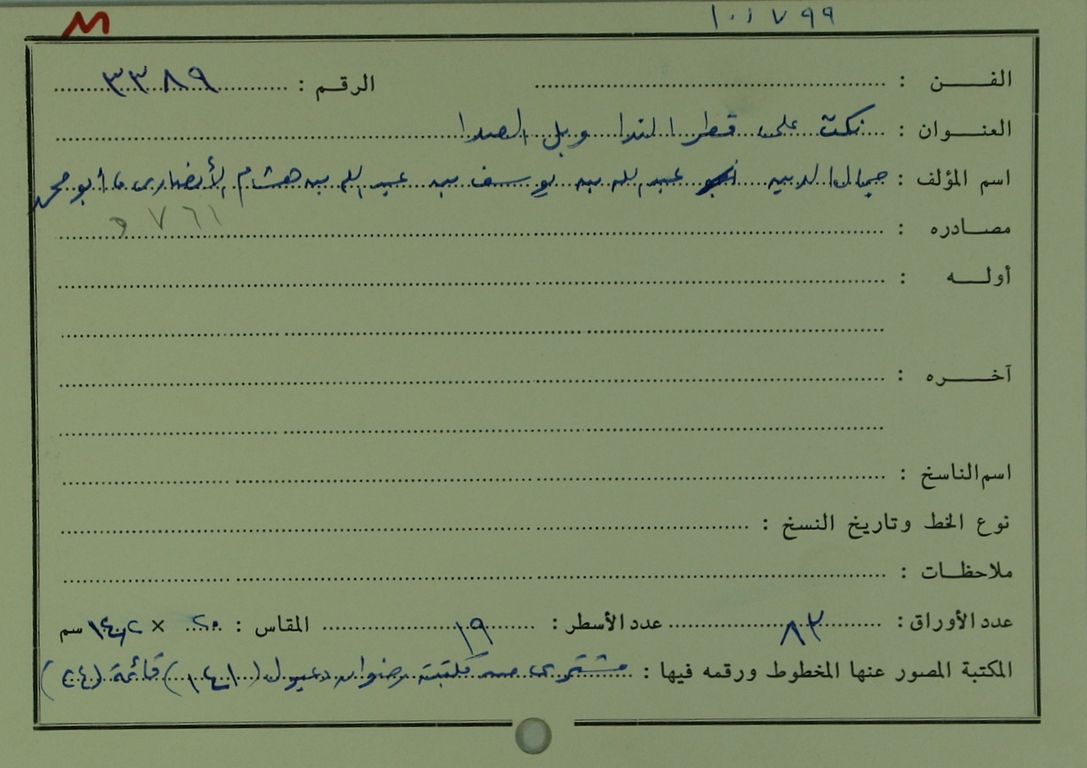 M ١٠١٧٩٩
الفن : الرقم : ٣٣٨٩
العنوان : نكت على قطر الندا وبل الصدا
اسم المؤلف : جمال الدين عبد الله بن يوسف بن عبد الله بن هشام الأنصاري ، أبو محمد
مصادره : ٧٦١
أوله :
آخره :
اسم الناسخ :
نوع الخط وتاريخ النسخ :
ملاحظات :
عدد الأوراق : ٨٣ عدد الأسطر : ١٩ المقاس : ٢٠ × سم
المكتبة المصور عنها المخطوط ورقمه فيها : مشترى من مكتبة رضوان دعبول قائمة